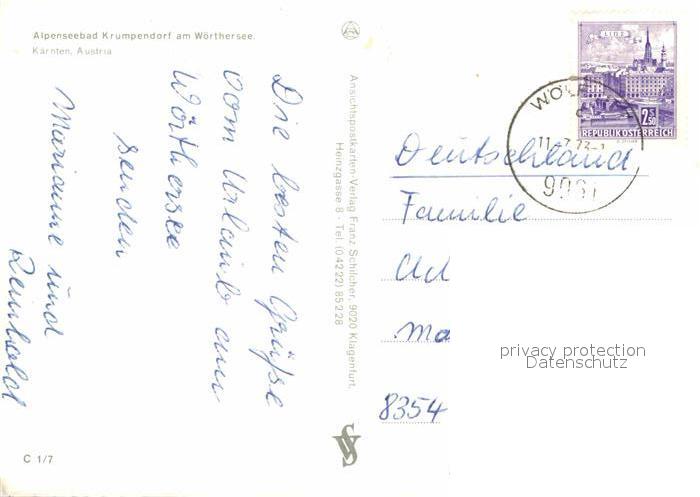 Alpenseebad Krumpendorf am Wörthersee.
Kärnten, Austria
Die besten Grüße
vom Urlaub am
Wörthersee
senden
Marianne und
Reinhold
C 1/7
Ansichtspostkarten-Verlag Franz Schilcher, 9020 Klagenfurt,
Heinzgasse 8 · Tel. (04222) 85228
LINZ
2.50
REPUBLIK ÖSTERREICH
Deutschland
Familie
Ad
Ma
8354
privacy protection
Datenschutz